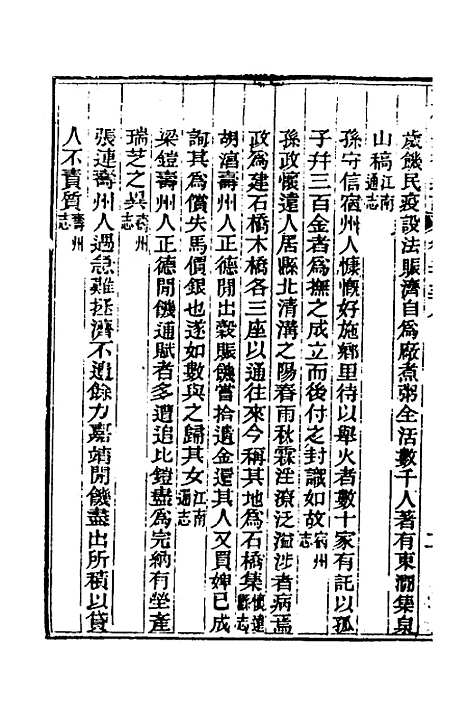 歲饑民疫設法賑濟自爲廠煮粥全活數千人著有東澗集泉
山稿江南通志
孫守信宿州人慷慨好施鄉里待以舉火者數十家有託以孤
子幷三百金者爲撫之成立而後付之封識如故宿州志
孫政懷遠人居縣北清溝之陽春雨秋霖淫潦泛溢涉者病焉
政爲建石橋木橋各三座以通往來今稱其地爲石橋集懷遠縣志
胡濱壽州人正德閒出穀賑饑嘗拾遺金還其人又買婢已成
詢其爲償失馬價銀也遂如數與之歸其女江南通志
梁鎧壽州人正德閒饑通賦者多遭追比鎧盡爲完納有坐產
瑞芝之異壽州志
張連壽州人遇急難拯濟不遺餘力嘉靖閒饑盡出所積以貸
人不責質壽州志